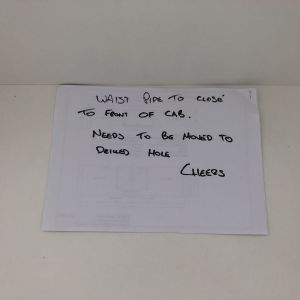 WAIST PIPE TO CLOSE
TO FRONT OF CAB.
NEEDS TO BE MOVED TO
DRILLED HOLE
CHEERS